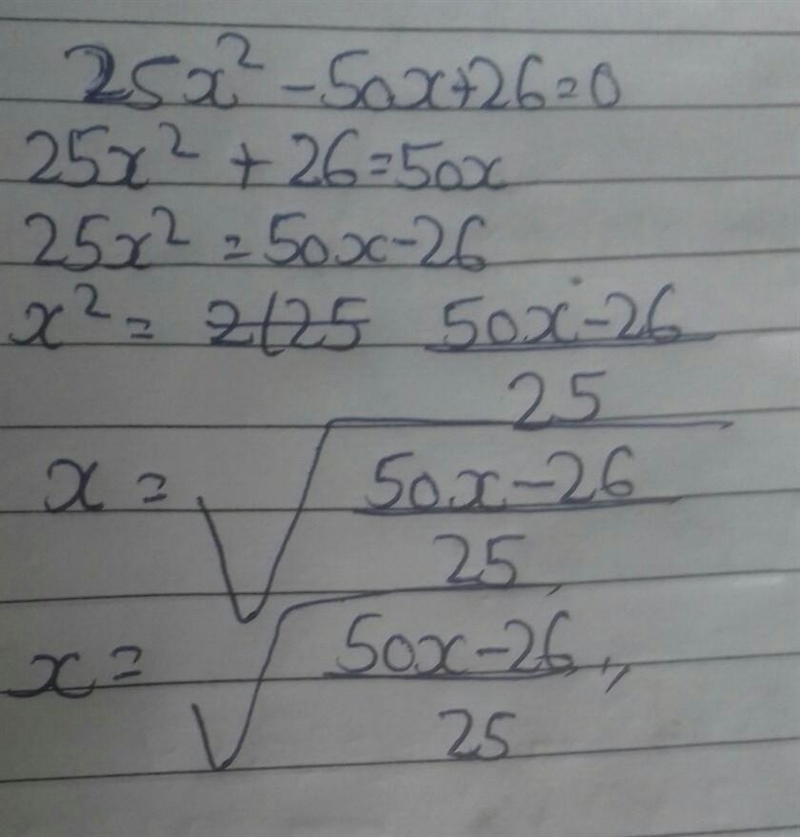 25x² - 50x + 26 = 0
25x² + 26 = 50x
25x² = 50x - 26
x² = 2(25 (50x - 26)/25
x = √((50x - 26)/25)
x = √((50x - 26)/25) ,,